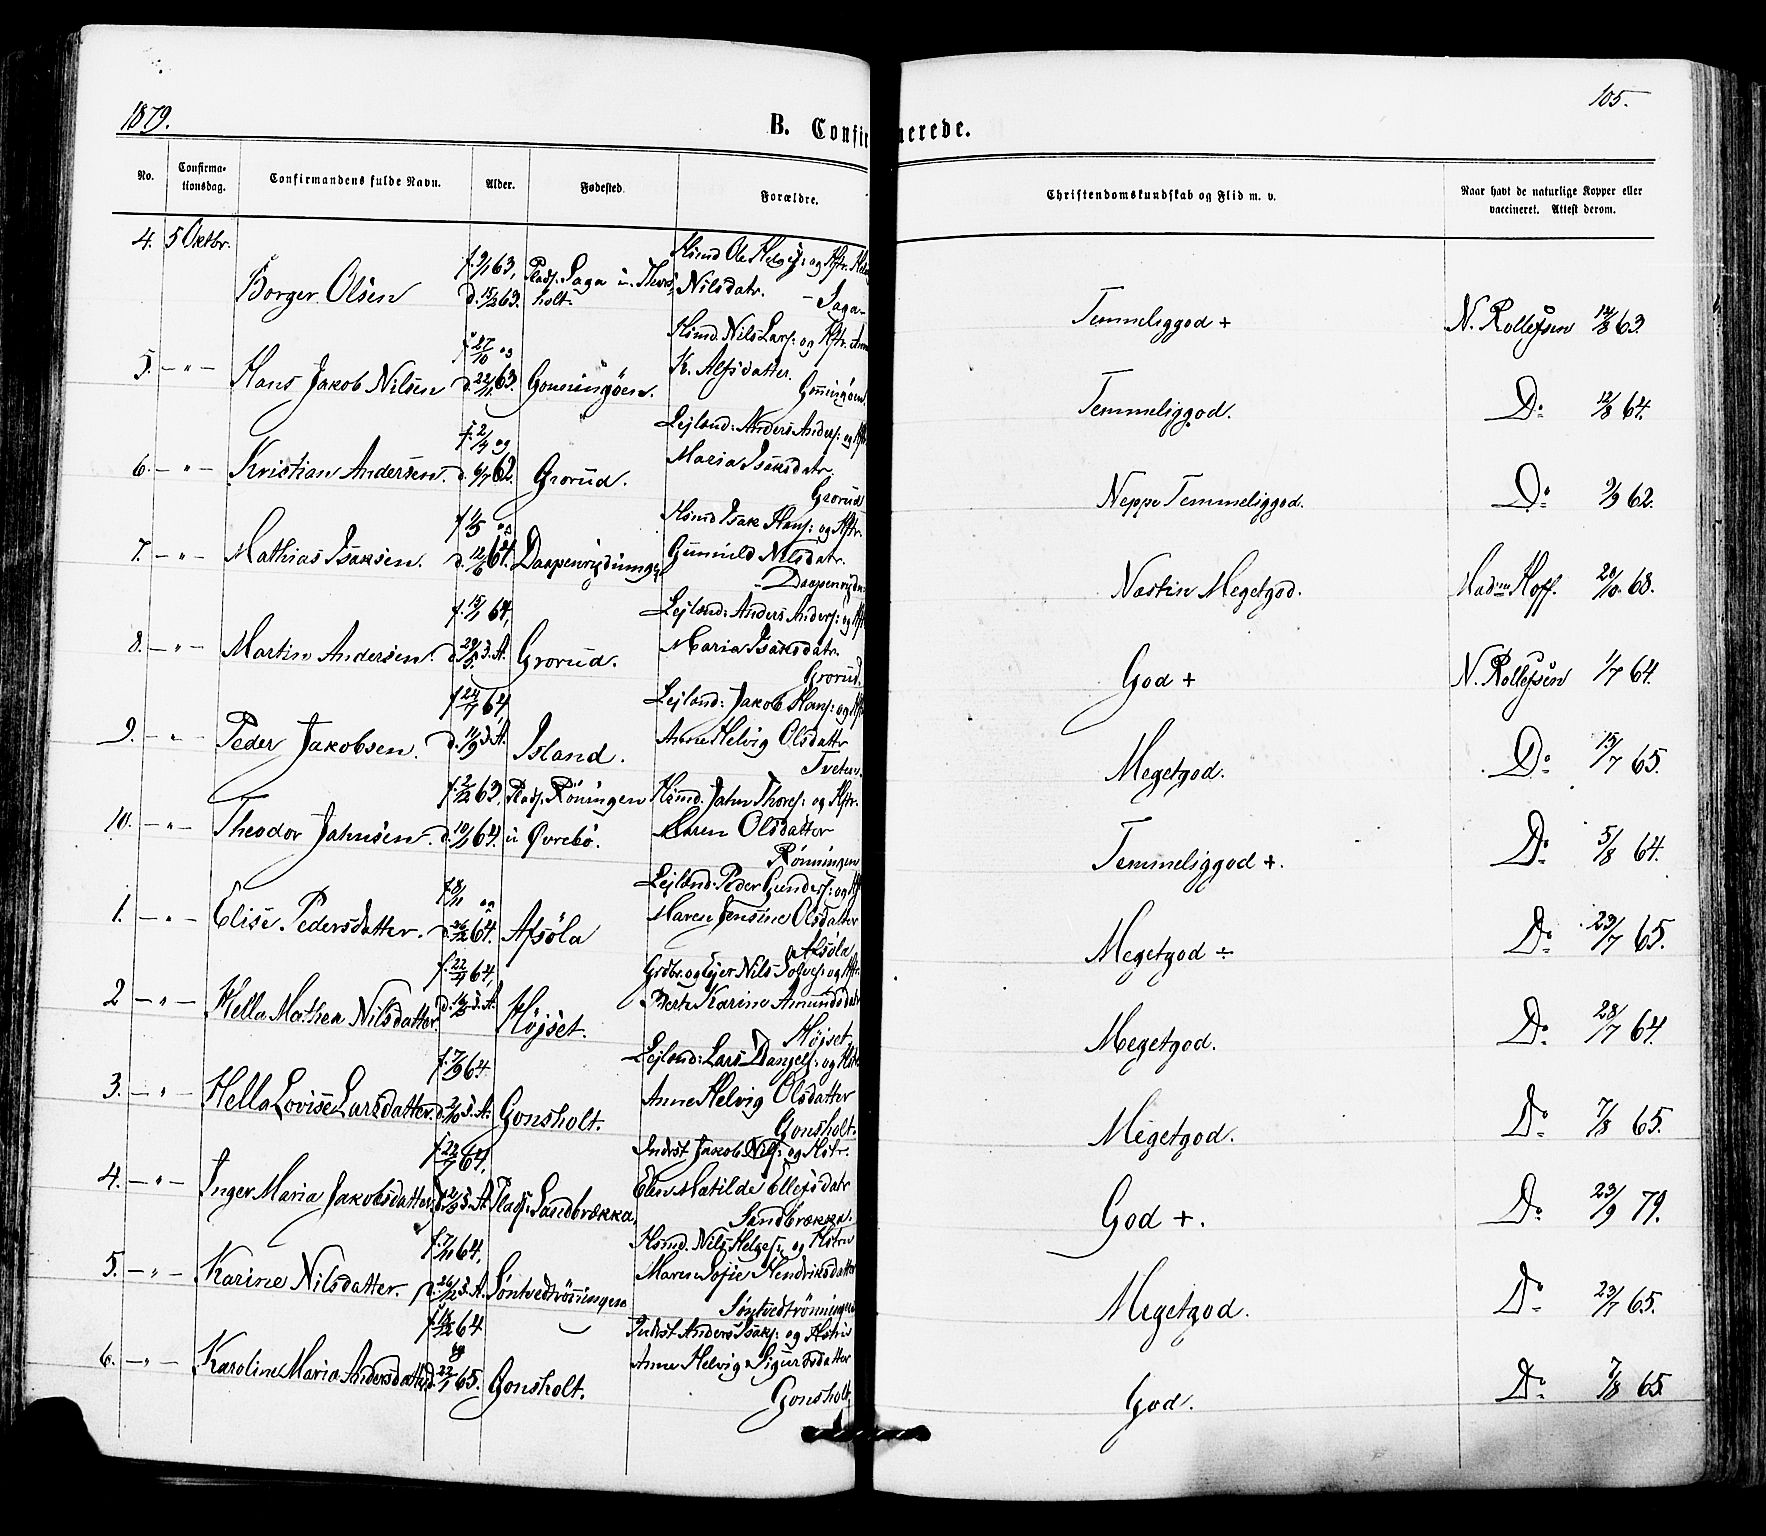 1879.
105.
B. Confirmerede.
No.
Confirmationsdag.
Confirmandens fulde Navn.
Alder.
Fødested.
Forældre.
Christendomskundskab og Flid m. v.
Naar havt de naturlige Kopper eller vaccineret. Attest derom.
4. 5 Oktbr.
Borger Olsen
f. 9/1 63, d. 15/2 63.
Plads. Saga u. Thorsholt.
Hsmd Ole Helges: og Hstr.
Nilsdatr.
– Saga
Temmeliggod +
N. Rollefsen 14/8 63.
5. – " – Hans Jakob Nilsen
f. 27/10 og d. 22/11 63.
Gonningöen.
Hsmd. Nils Lars: og Hstr.
K. Alfsdatter.
Gonningöen
Temmeliggod.
Do 12/8 64.
6. – " – Kristian Andersen.
f. 2/4 og d. 6/7 62.
Grorud.
Lejlend: Anders Anders: og
Maria Isaksdatr.
Grorud
Neppe Temmeliggod.
Do 9/9 62.
7. – " – Mathias Isaksen.
f. 1/5 og d. 12/6 64.
Hsmd Isak Hans: og Hstr.
Gunnild Nilsdatr.
Næsten Megetgod.
Madm Hoff. 20/10 68.
8. – " – Martin Andersen.
f. 15/1 64, d. 29/5 s. A.
Grorud.
Lejlend: Anders Anders: og
Maria Isaksdatr.
Grorud.
God +
N. Rollefsen 1/7 64.
9. – " – Peder Jakobsen.
f. 24/7 64, d. 11/9 s. A.
Island.
Lejlend: Jakob Hans: og
Anne Helvig Olsdattr
Tveten.
Megetgod.
Do 15/7 65.
10. – " – Theodor Jahnsen.
f. 2/12 63, d. 10/1 64.
Plads. Röningen u Övrebö.
Hsmd. Jahn Thores: og Hstr.
Maren Olsdatter
Rönningen
Temmeliggod +.
Do 5/8 64.
1. – " – Elise Pedersdatter.
f. 8/11 og d. 26/12 64.
Afsöla
Lejlend: Peder Gunders: og
Maren Jensine Olsdatter
Afsöla
Megetgod ÷
Do 23/7 65.
2 – " – Hella Mathea Nilsdatter
f. 22/4 64, d. 16/5 s. A.
Höjset.
Grdbr. og Ejer Nils Solves: og Hstr.
Berte Karine Amundsdatr
Höjset.
Megetgod.
Do 28/7 64.
3. – " – Hella Lovise Larsdatter
f. 7/9 64. d. 2/10 s. A.
Gonsholt.
Lejlend: Lars Danjels: og
Anne Helvig Olsdatter
Gonsholt.
Megetgod.
Do 7/8 65.
4. – " – Inger Maria Jakobsdatter
f. 22/7 64, d. 12/9 s. A.
Plads. Sandbrækka,
Inderst Jakob Nils: og Hstr.
Elen Matilde Ellefsdatr
Sandbrækka.
God +.
Do 23/9 79.
5. – " – Karine Nilsdatter.
f. 7/11 64, d. 26/12 s. A.
Söntvedtrönningen
Hsmd. Nils Helges: og Hstru
Maren Sofie Hendriksdatter
Söntvedtrönningen
Megetgod.
Do 23/7 65.
6. – " – Karoline Maria Andersdatter
64 og d. 22/1 65.
Gonsholt.
Inderst Anders Isaks: og Hstru
Anne Helvig Sigurdsdatter
Gonsholt
God.
Do 7/8 65.